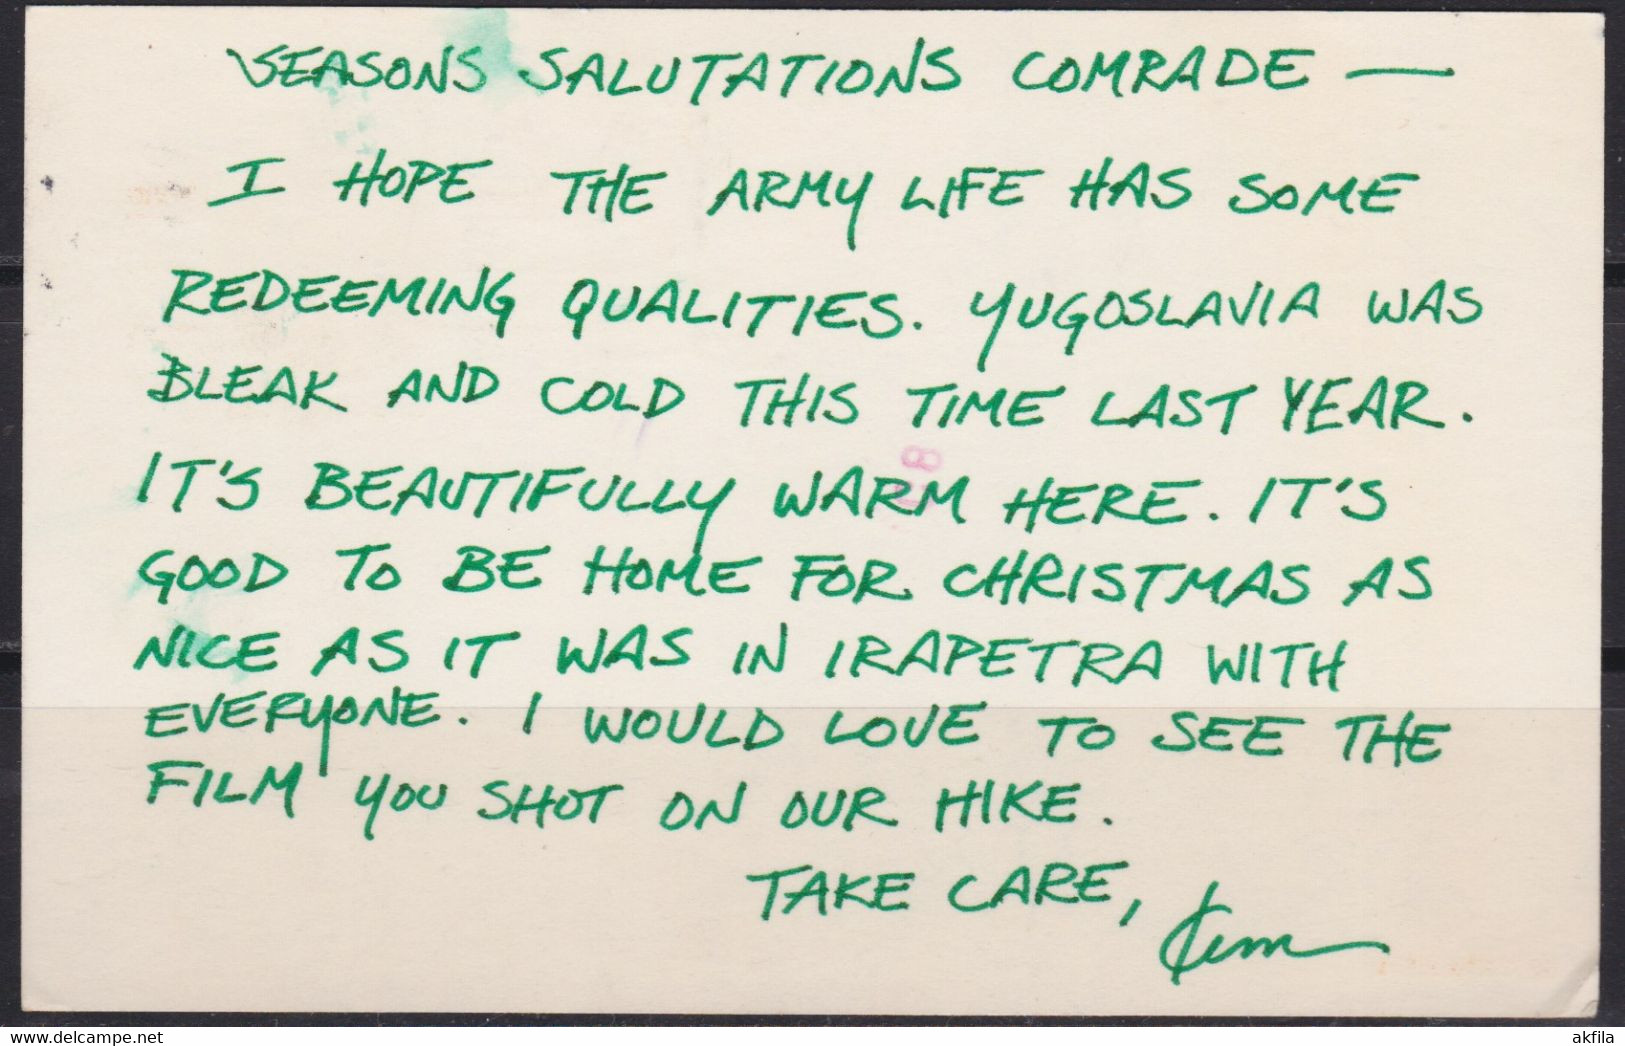 SEASONS SALUTATIONS COMRADE —
I HOPE THE ARMY LIFE HAS SOME
REDEEMING QUALITIES. YUGOSLAVIA WAS
BLEAK AND COLD THIS TIME LAST YEAR.
IT'S BEAUTIFULLY WARM HERE. IT'S
GOOD TO BE HOME FOR CHRISTMAS AS
NICE AS IT WAS IN IRAPETRA WITH
EVERYONE. I WOULD LOVE TO SEE THE
FILM YOU SHOT ON OUR HIKE.
TAKE CARE, Kim
https://www.delcampe.net
akfila